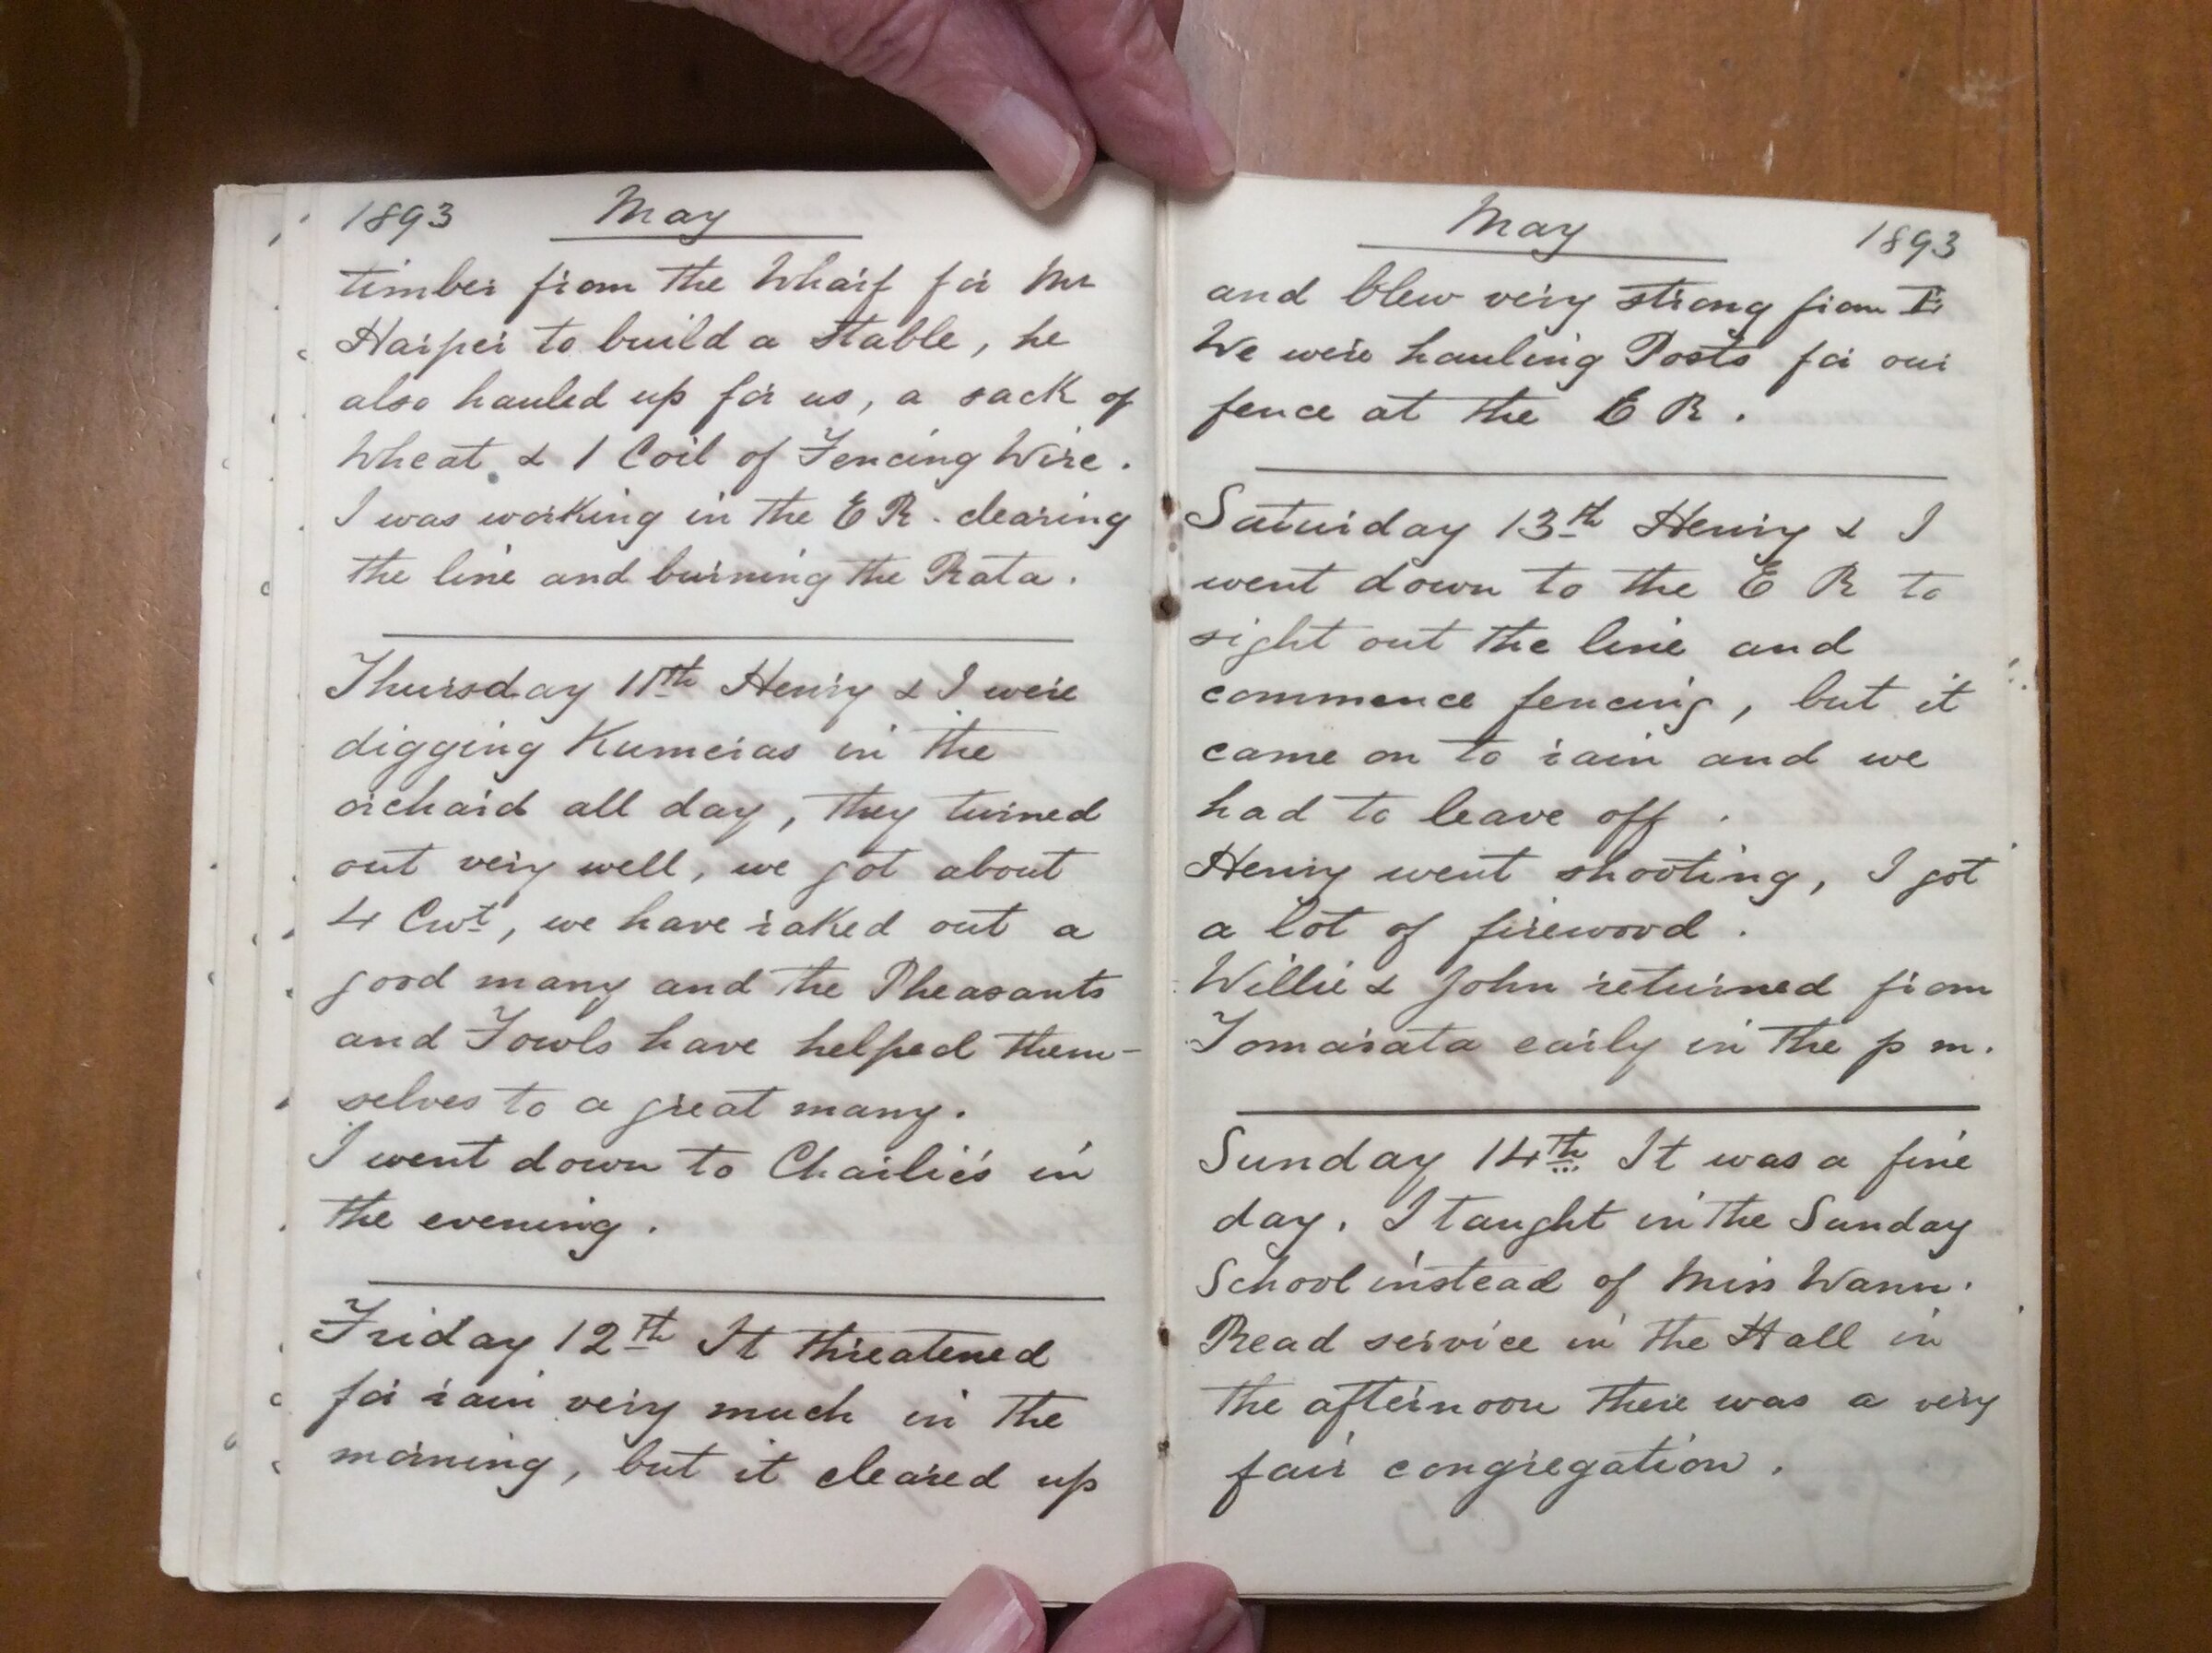 1893 May
timber from the Wharf for Mr
Harper to build a Stable, he
also hauled up for us, a sack of
Wheat & 1 Coil of Fencing Wire.
I was working in the E R. clearing
the line and burning the Rata.
Thursday 11th Henry & I were
digging Kumeras in the
orchard all day, they turned
out very well, we got about
4 Cwt, we have raked out a
good many and the Pheasants
and Fowls have helped them-
selves to a great many.
I went down to Charlie's in
the evening.
Friday 12th It threatened
for rain very much in the
morning, but it cleared up
May 1893
and blew very strong from E
We were hauling Posts for our
fence at the E R.
Saturday 13th Henry & I
went down to the E R to
sight out the line and
commence fencing, but it
came on to rain and we
had to leave off.
Henry went shooting, I got
a lot of firewood.
Willie & John returned from
Tomarata early in the p m.
Sunday 14th It was a fine
day. I taught in the Sunday
School instead of Miss Wann.
Read service in the Hall in
the afternoon there was a very
fair congregation.